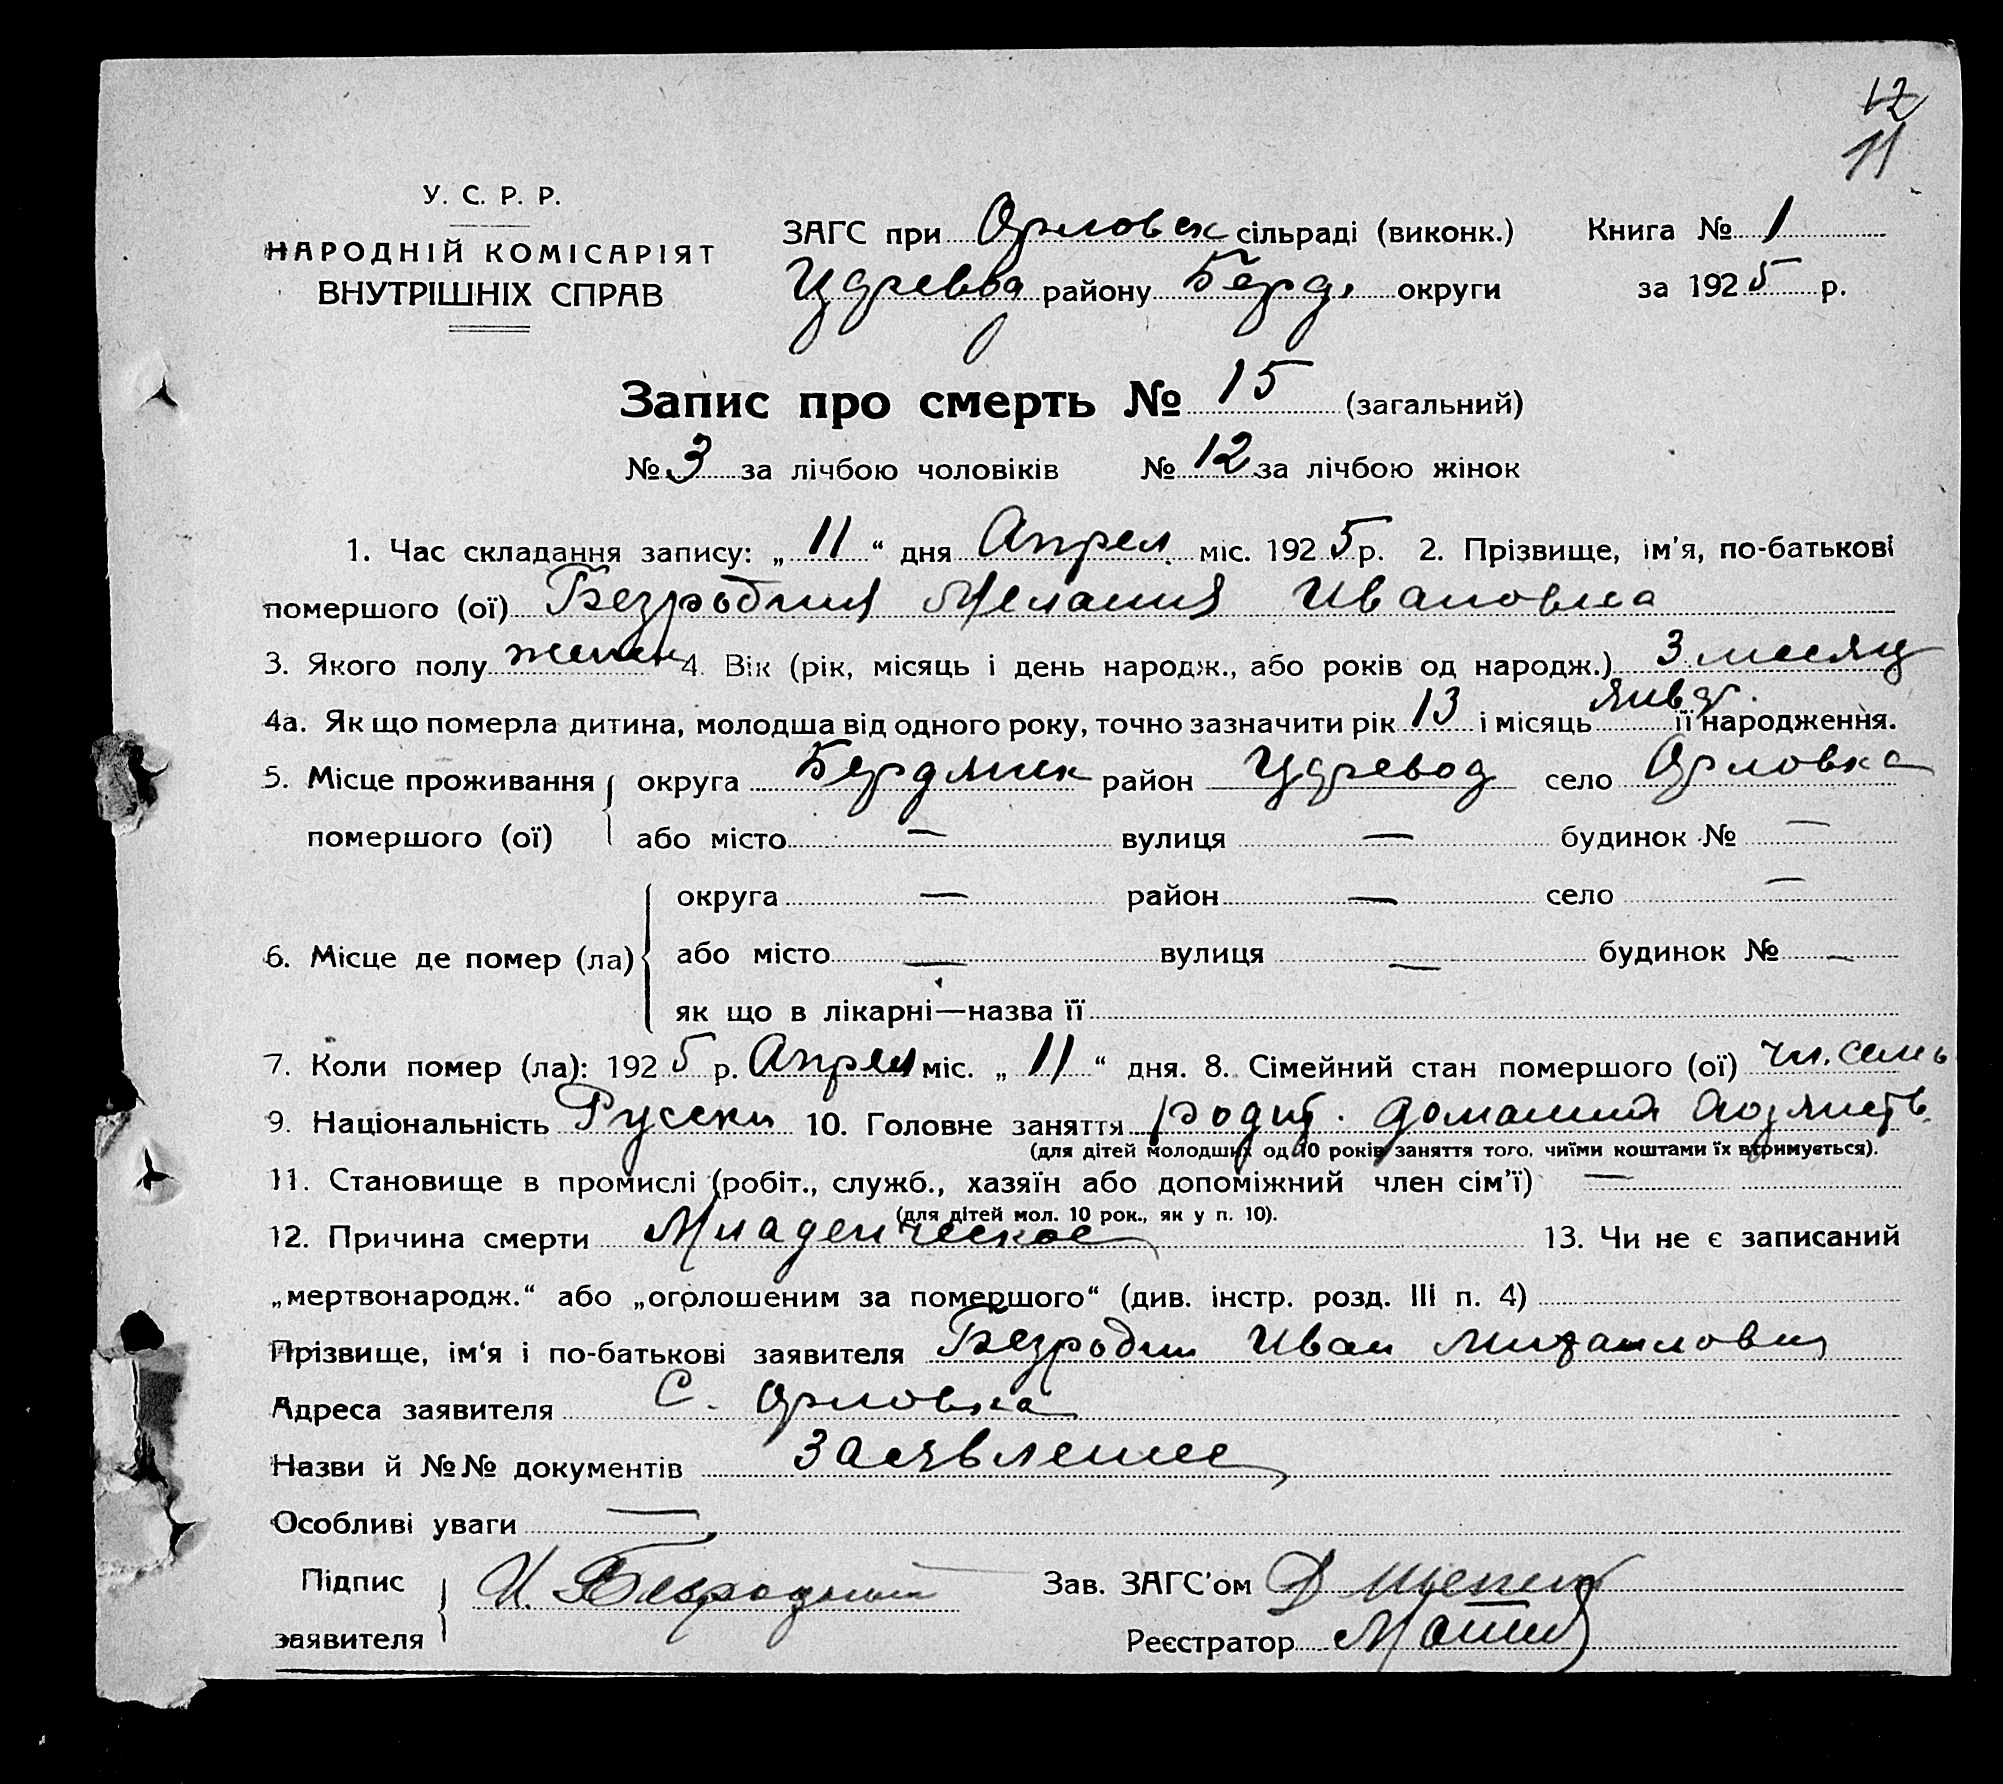 12
11
У. С. Р. Р.
НАРОДНІЙ КОМІСАРІЯТ
ВНУТРІШНІХ СПРАВ
ЗАГС при Орловск сільраді (виконк.) Книга № 1
району Берд. округи за 1925 р.
Запис про смерть № 15 (загальний)
№ 3 за лічбою чоловіків № 12 за лічбою жінок
1. Час складання запису: „11“ дня Апрел міс. 1925 р. 2. Прізвище, ім'я, по-батькові
помершого (ої) Безродния Мелания Ивановна
3. Якого полу женск 4. Вік (рік, місяць і день народж., або років од народж.) 3 месяц
4а. Як що померла дитина, молодша від одного року, точно зазначити рік 13 і місяць янвр. її народження.
5. Місце проживання помершого (ої) округа Бердянск район село Орловка
або місто — вулиця — будинок № —
6. Місце де помер (ла) округа — район — село —
або місто — вулиця — будинок № —
як що в лікарні—назва її
7. Коли помер (ла): 1925 р. Апрел міс. „11“ дня. 8. Сімейний стан помершого (ої) чл. семь
9. Національність Русски 10. Головне заняття родит. домашний
(для дітей молодших од 10 років заняття того, чиїми коштами їх втримується).
11. Становище в промислі (робіт., служб., хазяїн або допоміжний член сім'ї) —
(для дітей мол. 10 рок., як у п. 10).
12. Причина смерти Младенческое 13. Чи не є записаний
„мертвонародж.“ або „оголошеним за помершого“ (див. інстр. розд. III п. 4)
Прізвище, ім'я і по-батькові заявителя Безродни Иван Михаилович
Адреса заявителя С. Орловка
Назви й №№ документів Заявление
Особливі уваги —
Підпис заявителя И. Безродный Зав. ЗАГС'ом
Реєстратор